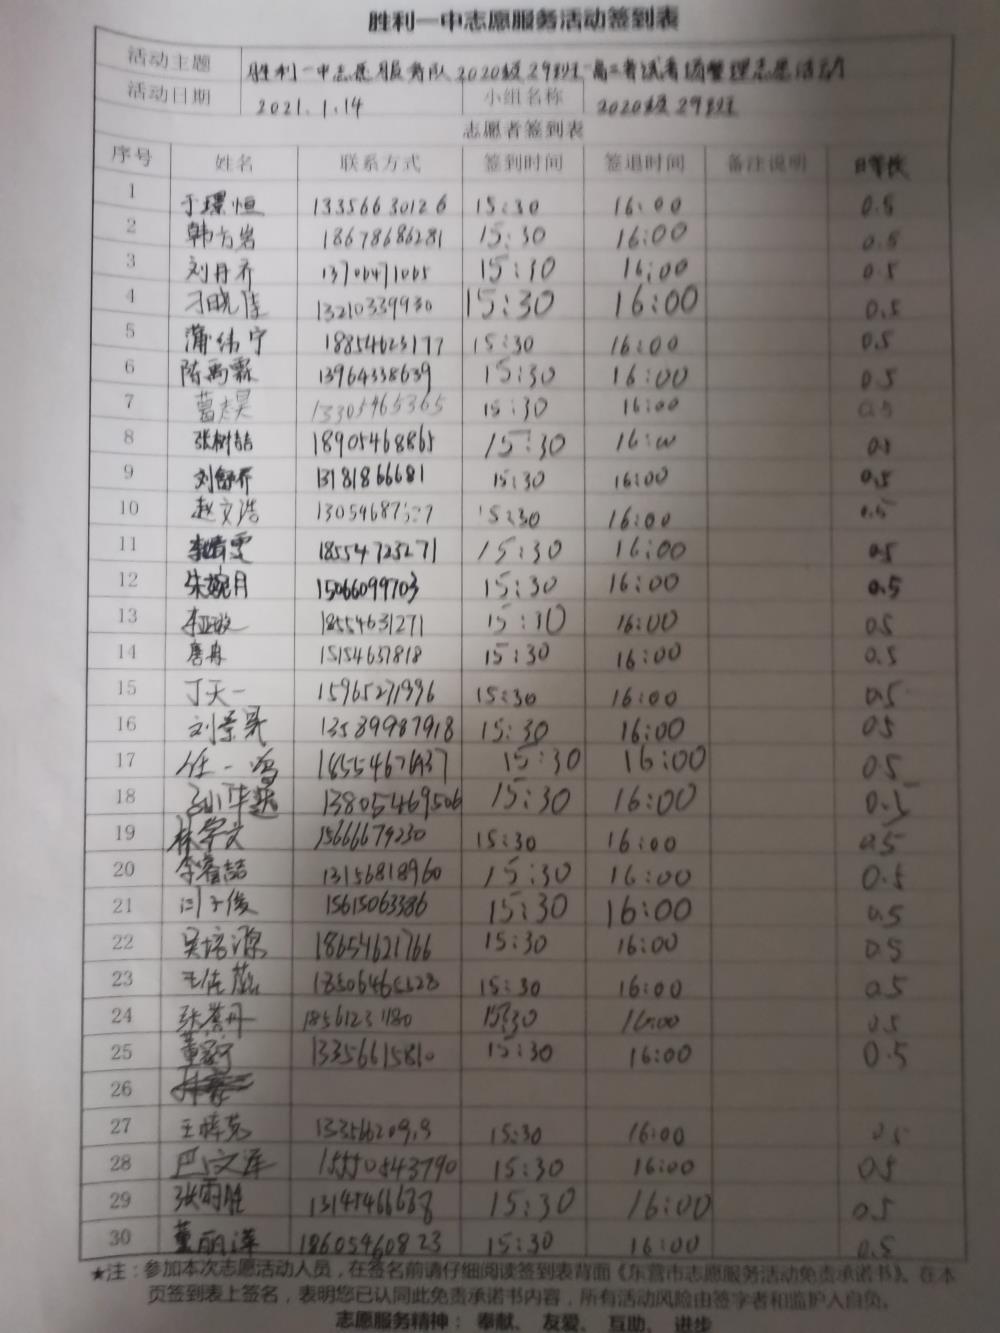 胜利一中志愿服务活动签到表
活动主题 胜利一中志愿服务队2020级29班-高三考试考场整理志愿活动
活动日期 2021.1.14 小组名称 2020级29班
志愿者签到表
序号 姓名 联系方式 签到时间 签退时间 备注说明 时长
1 于璟恒 13356630126 15:30 16:00 0.5
2 韩方岩 18678686281 15:30 16:00 0.5
3 刘丹乔 15:30 16:00 0.5
4 刁晓佳 13210339930 15:30 16:00 0.5
5 蒲纬宁 18854623177 15:30 16:00 0.5
6 陈禹霖 13964338639 15:30 16:00 0.5
7 葛志昊 13305465365 15:30 16:00 0.5
8 张树喆 18905468865 15:30 16:00 0.5
9 刘舒乔 13181866681 15:30 16:00 0.5
10 赵文浩 15:30 16:00 0.5
11 李婧雯 18554725271 15:30 16:00 0.5
12 朱婉月 15066099703 15:30 16:00 0.5
13 李亚璇 18554631271 15:30 16:00 0.5
14 唐冉 15154637818 15:30 16:00 0.5
15 丁天一 15965271996 15:30 16:00 0.5
16 刘景昊 13589987918 15:30 16:00 0.5
17 任一鸣 15:30 16:00 0.5
18 13805469506 15:30 16:00 0.5
19 林学文 15666679230 15:30 16:00 0.5
20 李睿喆 13156818960 15:30 16:00 0.5
21 闫子俊 15615063386 15:30 16:00 0.5
22 吴培源 18654621766 15:30 16:00 0.5
23 王佳蕊 15:30 16:00 0.5
24 张誉丹 18561231180 15:30 16:00 0.5
25 13356615810 15:30 16:00 0.5
26
27 15:30 16:00 0.5
28 巴文军 15550543790 15:30 16:00 0.5
29 张雨胜 15:30 16:00 0.5
30 董丽泽 18605460823 15:30 16:00 0.5
★注：参加本次志愿活动人员，在签名前请仔细阅读签到表背面《东营市志愿服务活动免责承诺书》。在本
页签到表上签名，表明您已认同此免责承诺书内容，所有活动风险由签字者和监护人自负。
志愿服务精神： 奉献、 友爱、 互助、 进步